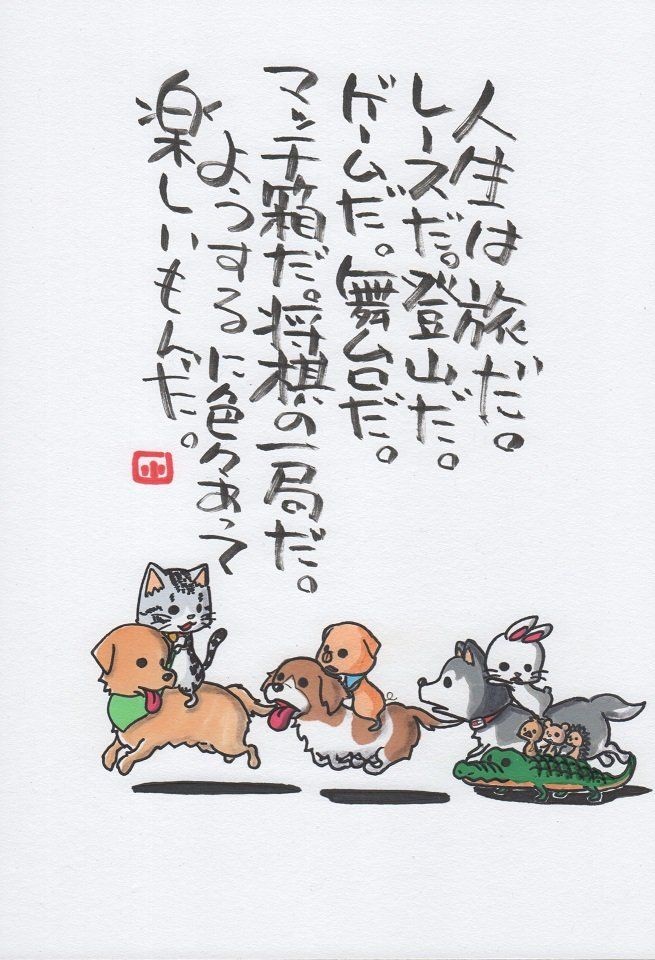 人生は旅だ。
レースだ。登山だ。
ゲームだ。舞台だ。
マッチ箱だ。将棋の一局だ。
ようするに色々あって
楽しいもんだ。